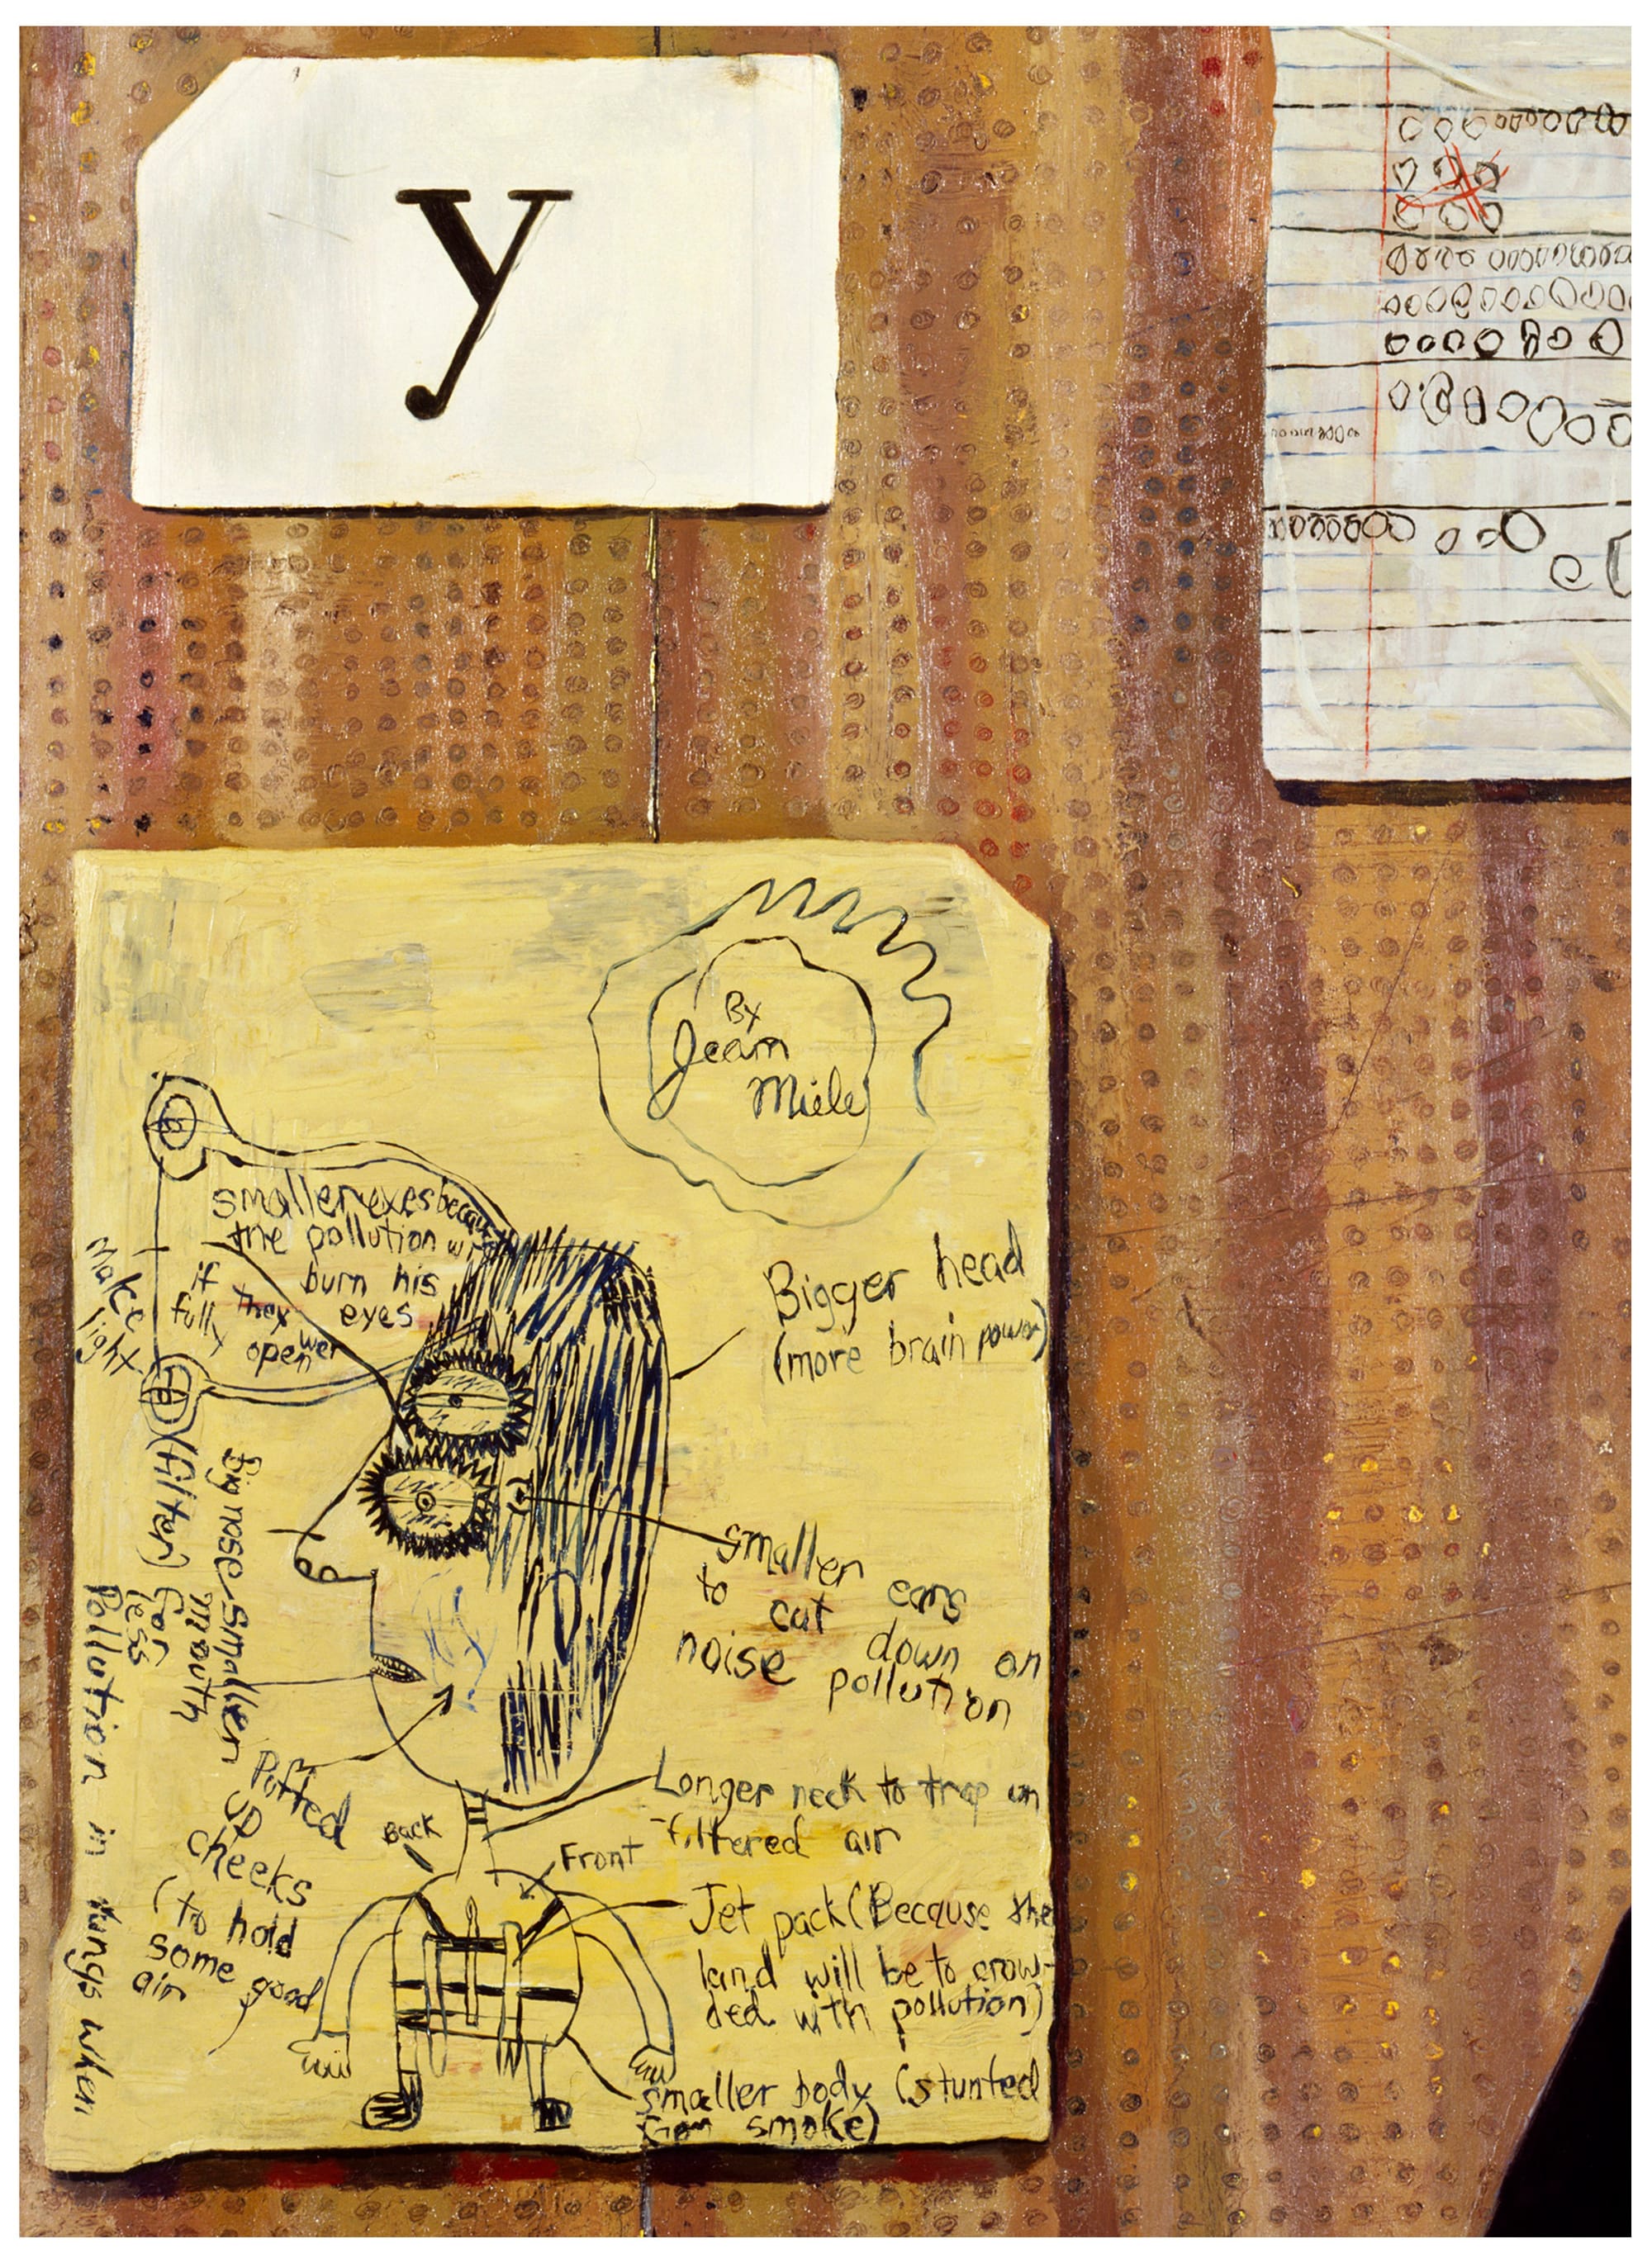 y
By
Jeam
Miele
smaller eyes because
the pollution
burn his
eyes
if they wer
fully open
Make
light
Bigger head
(more brain power)
Big nose
(filter) for
less
Pollution in lungs when
smaller
mouth
smaller ears
to cut down on
noise pollution
Puffed
up
cheeks
(to hold
some good
air
Longer neck to trap un
-filtered air
Back
Front
Jet pack (Because the
land will be to crow-
ded with pollution)
smaller body (stunted
from smoke)